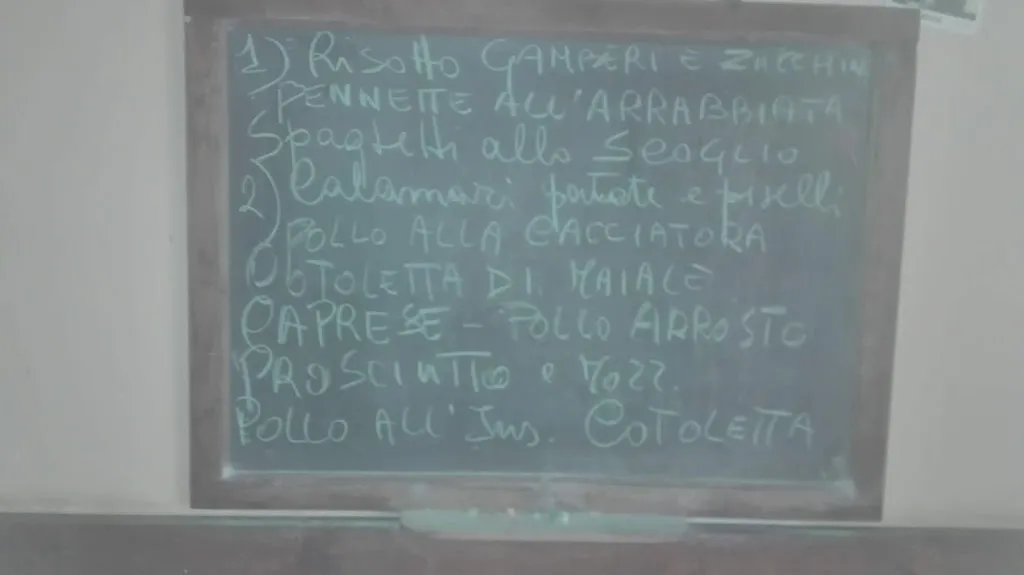 1) Risotto GAMPERI E ZUCCHIN
PENNETTE ALL'ARRABBIATA
Spaghetti allo SCOGLIO
2) Calamari patate e piselli
POLLO ALLA CACCIATORA
COTOLETTA DI MAIALE
CAPRESE - POLLO ARROSTO
PROSCIUTTO e MOZZ.
POLLO ALL'Ins. COTOLETTA